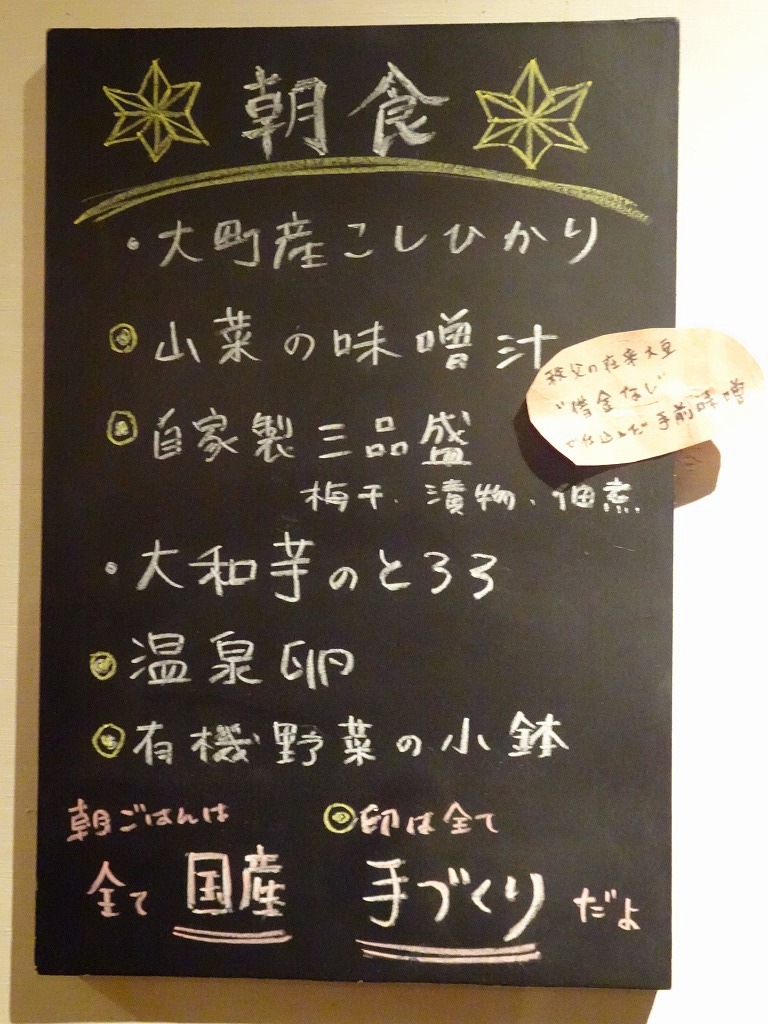 朝食
・大町産こしひかり
◉山菜の味噌汁
秩父の在来大豆
"借金なし"
で仕込んだ手前味噌
◉自家製三品盛
梅干、漬物、佃煮
・大和芋のとろろ
◉温泉卵
◉有機野菜の小鉢
朝ごはんは
全て国産
◉印は全て
手づくりだよ